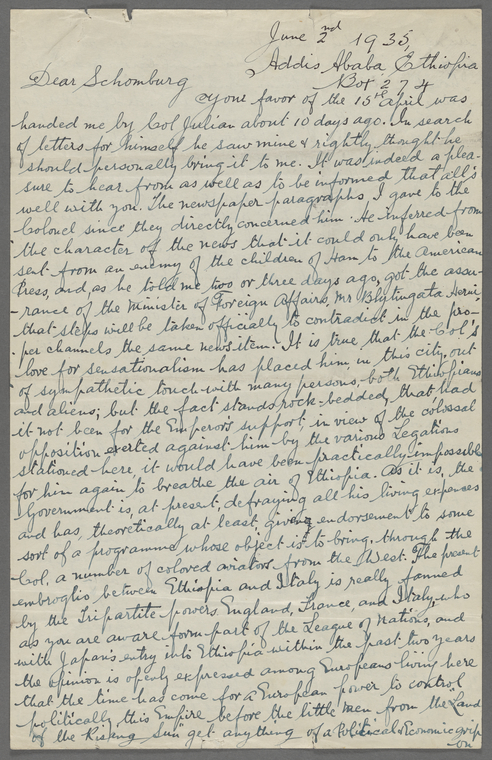 June 2nd 1935,
Addis Ababa Ethiopia
Box 274
Dear Schomburg
your favor of the 15th April was
handed me by Col Julian about 10 days ago. In search
of letters for himself he saw mine & rightly thought he
should personally bring it to me. It was indeed a plea-
sure to hear from as well as to be informed that all's
well with you. The newspaper paragraphs, I gave to the
Colonel since they directly concerned him. He inferred from
the character of the news that it could only have been
sent from an enemy of the children of Ham, to the American
Press, and, as he told me two or three days ago, got the assu-
rance of the Minister of Foreign Affairs, Mr Blytingata Herui-
that steps will be taken officially to contradict in the pro-
per channels the same news item. It is true that the Col's
love for sensationalism has placed him, in this city, out
of sympathetic touch with many persons,-both Ethiopians
and aliens; but the fact stands rock-bedded, that had
it not been for the Emperor's support, in view of the colossal
opposition exerted against him by the various Legations
stationed here, it would have been practically impossible
for him again to breathe the air of Ethiopia. As it is, the
Government is, at present, defraying all his living expences
and has, theoretically at least, given endorsement to some
sort of a programme whose object is to bring, through the
Col, a number of colored aviators from the West. The present
embroglio between Ethiopia and Italy is really fanned
by the Tripartite powers England, France, and Italy, who
as you are aware form part of the League of Nations, and
with Japan's entry into Ethiopia within the past two years
the opinion is openly expressed among Europeans living here
that the time has come for a European power to control
politically this Empire before the little men from the "Land
of the Rising Sun" get anything of a Political & Economic grip
on